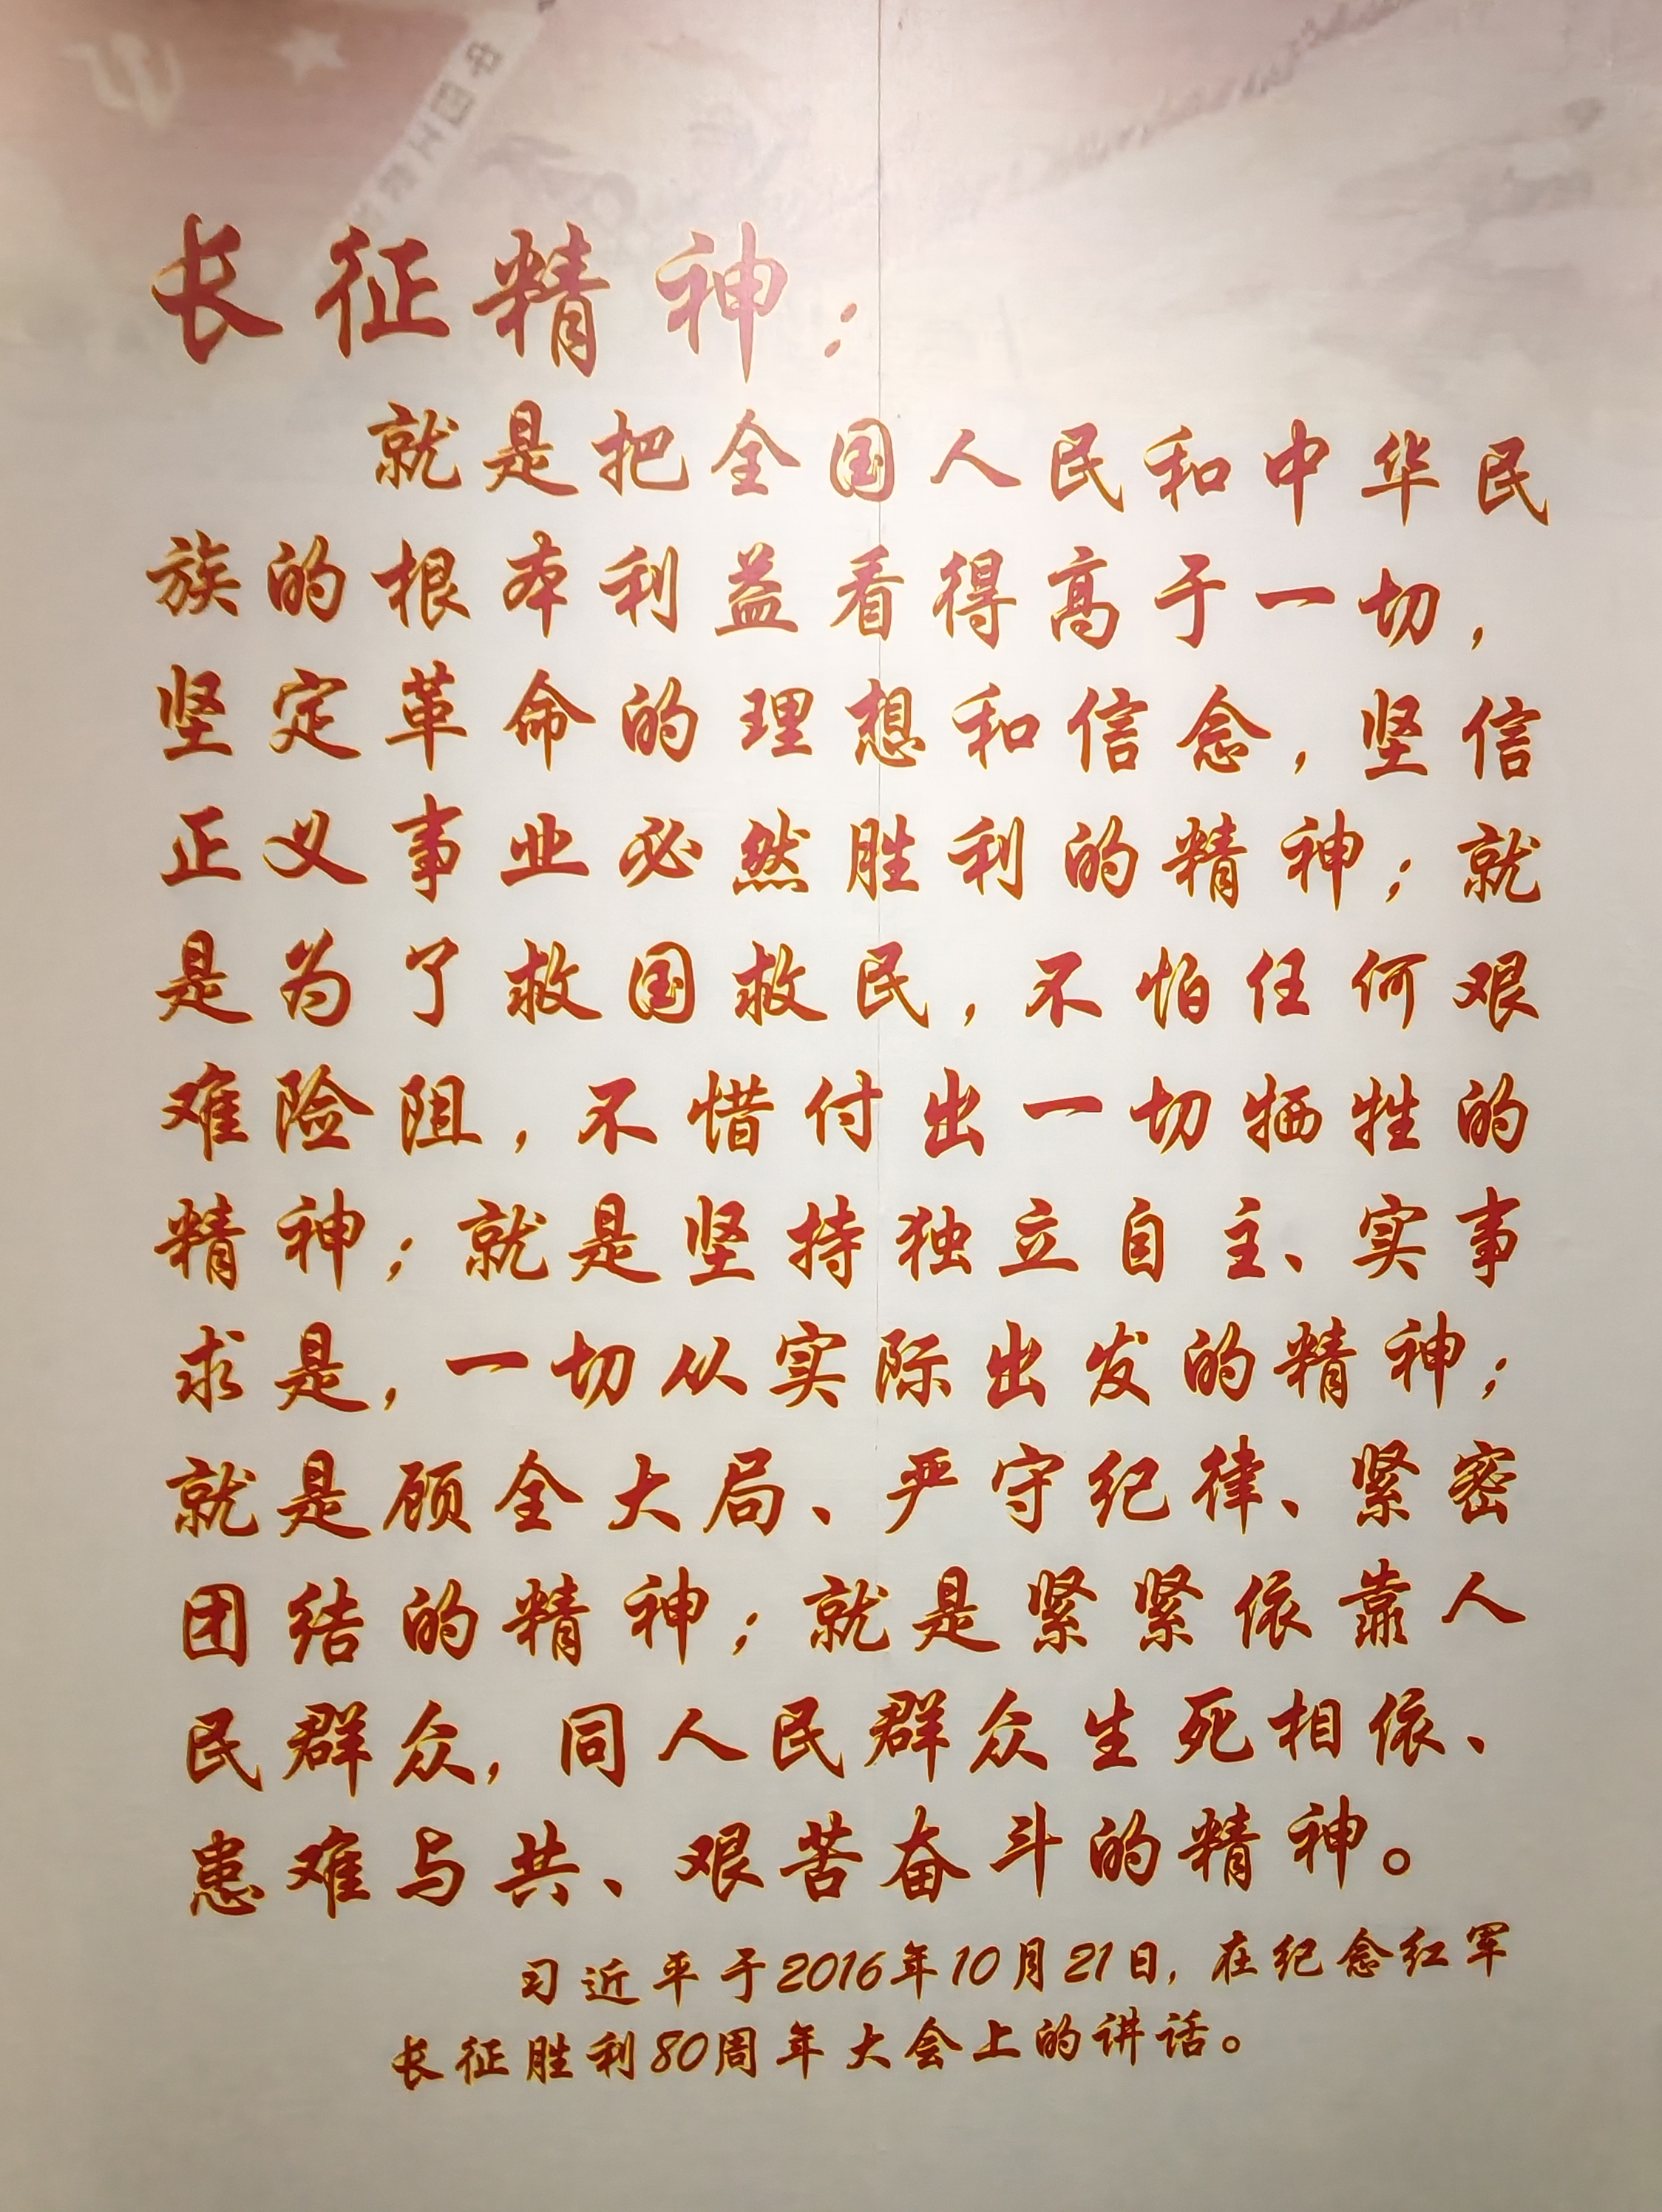 长征精神：
就是把全国人民和中华民
族的根本利益看得高于一切，
坚定革命的理想和信念，坚信
正义事业必然胜利的精神；就
是为了救国救民，不怕任何艰
难险阻，不惜付出一切牺牲的
精神；就是坚持独立自主、实事
求是，一切从实际出发的精神；
就是顾全大局、严守纪律、紧密
团结的精神；就是紧紧依靠人
民群众，同人民群众生死相依、
患难与共、艰苦奋斗的精神。
习近平于2016年10月21日，在纪念红军
长征胜利80周年大会上的讲话。